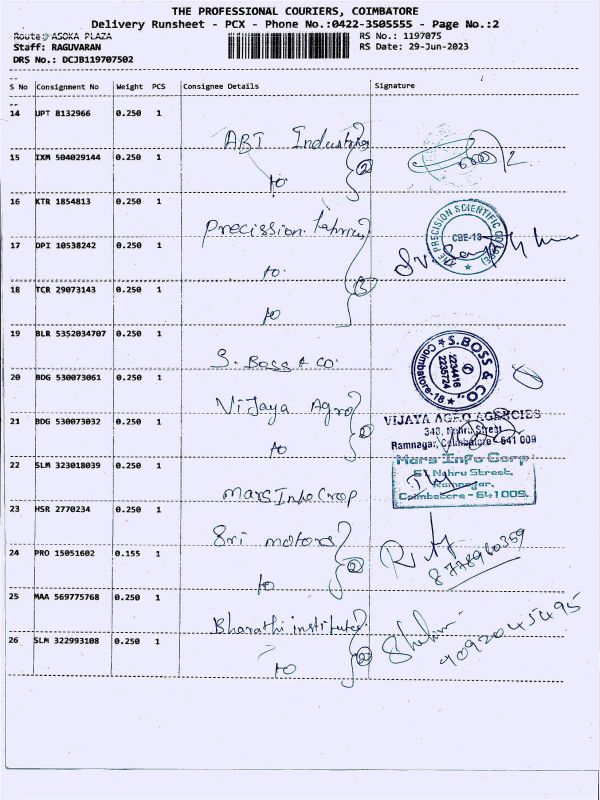 THE PROFESSIONAL COURIERS, COIMBATORE
Delivery Runsheet - PCX - Phone No.:0422-3505555 - Page No.:2
Route: ASOKA PLAZA RS No.: 1197075
Staff: RAGUVARAN RS Date: 29-Jun-2023
DRS No.: DCJB119707502
S No Consignment No Weight PCS Consignee Details Signature
14 UPT 8132966 0.250 1
ABT Industries
15 IXM 504029144 0.250 1
to
2
16 KTR 1854813 0.250 1
Precission
THE PRECISION SCIENTIFIC
CBE-18
17 DPI 10538242 0.250 1
to
18 TCR 29073143 0.250 1
to
19 BLR 5352034707 0.250 1
S. Boss & Co.
S. BOSS & CO.
2234416
2235724
Coimbatore-18
20 BDG 530073061 0.250 1
Vijaya Agro
21 BDG 530073032 0.250 1
to
VIJAYA AGRO AGENCIES
343, Nehru Street
Ramnagar, Coimbatore - 641 009
22 SLM 323018039 0.250 1
Mars Info Crop
Mars Info Corp
Nehru Street,
Ramnagar,
Coimbatore - 641009.
23 HSR 2770234 0.250 1
Sri motors
24 PRO 15051602 0.155 1
to
2
8778960359
25 MAA 569775768 0.250 1
Bharathi institute
26 SLM 322993108 0.250 1
to
2